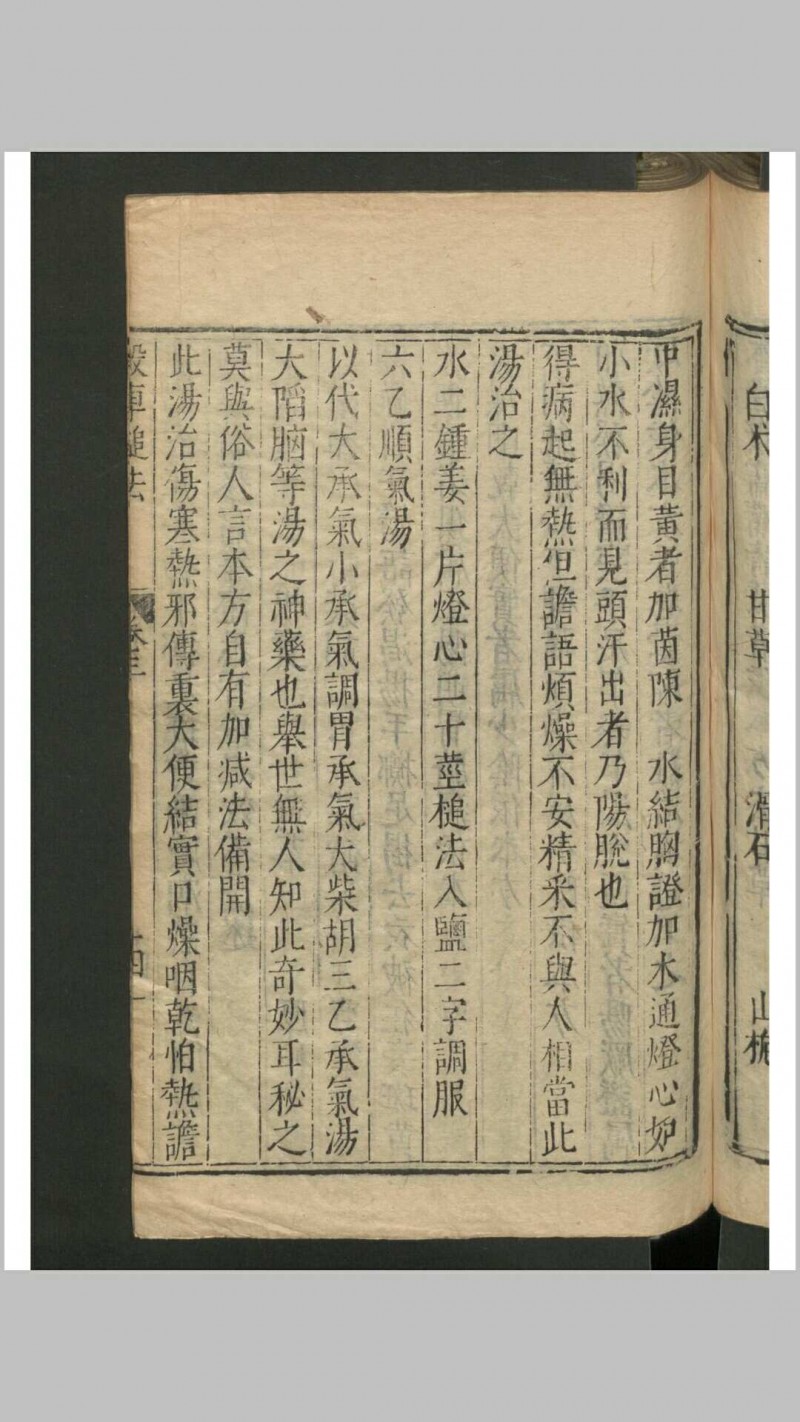 白术 甘草 滑石 山梔
中濕身目黃者加茵陳 水結胸證加木通燈心如
小水不利而見頭汗出者乃陽脫也
得病起無熱但譫語煩燥不安精采不與人相當此
湯治之
水二鍾姜一片燈心二十莖槌法入鹽二字調服
六乙順氣湯
以代大承氣小承氣調胃承氣大柴胡三乙承氣湯
大陷胸等湯之神藥也舉世無人知此奇妙耳秘之
莫與俗人言本方自有加减法備開
此湯治傷寒熱邪傳裏大便結實口燥咽乾怕熱譫
殺車槌法